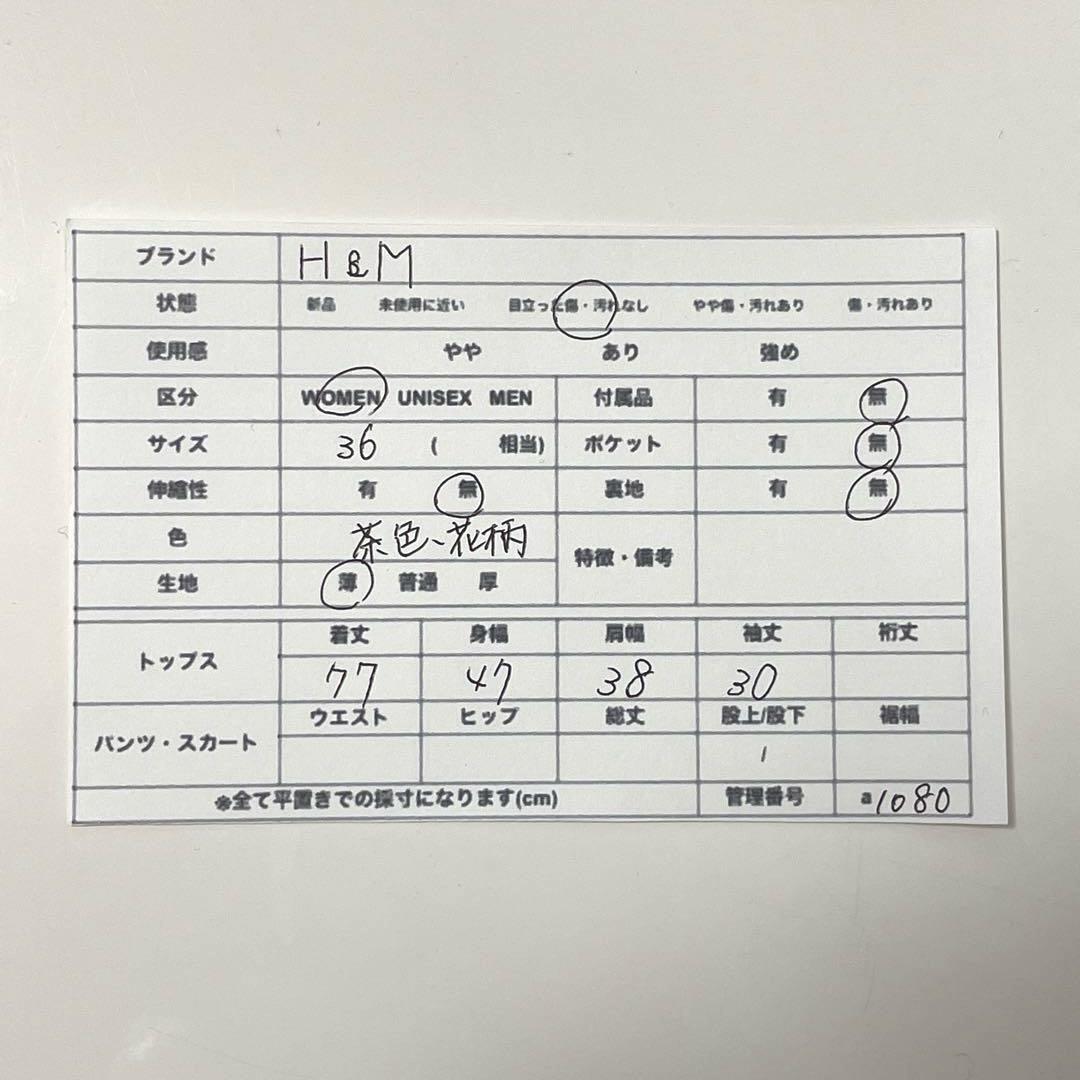 ブランド H&M
状態 新品 未使用に近い 目立った傷・汚れなし やや傷・汚れあり 傷・汚れあり
使用感 やや あり 強め
区分 WOMEN UNISEX MEN 付属品 有 無
サイズ 36 ( 相当) ポケット 有 無
伸縮性 有 無 裏地 有 無
色 茶色、花柄 特徴・備考
生地 薄 普通 厚
トップス 着丈 身幅 肩幅 袖丈 裄丈
77 47 38 30
パンツ・スカート ウエスト ヒップ 総丈 股上/股下 裾幅
/
※全て平置きでの採寸になります(cm) 管理番号 a1080